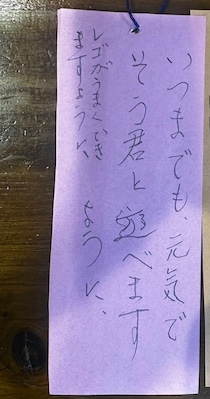 いつまでも、元気で
そう君と遊べます
ように、
レゴがうまくでき
ますように、